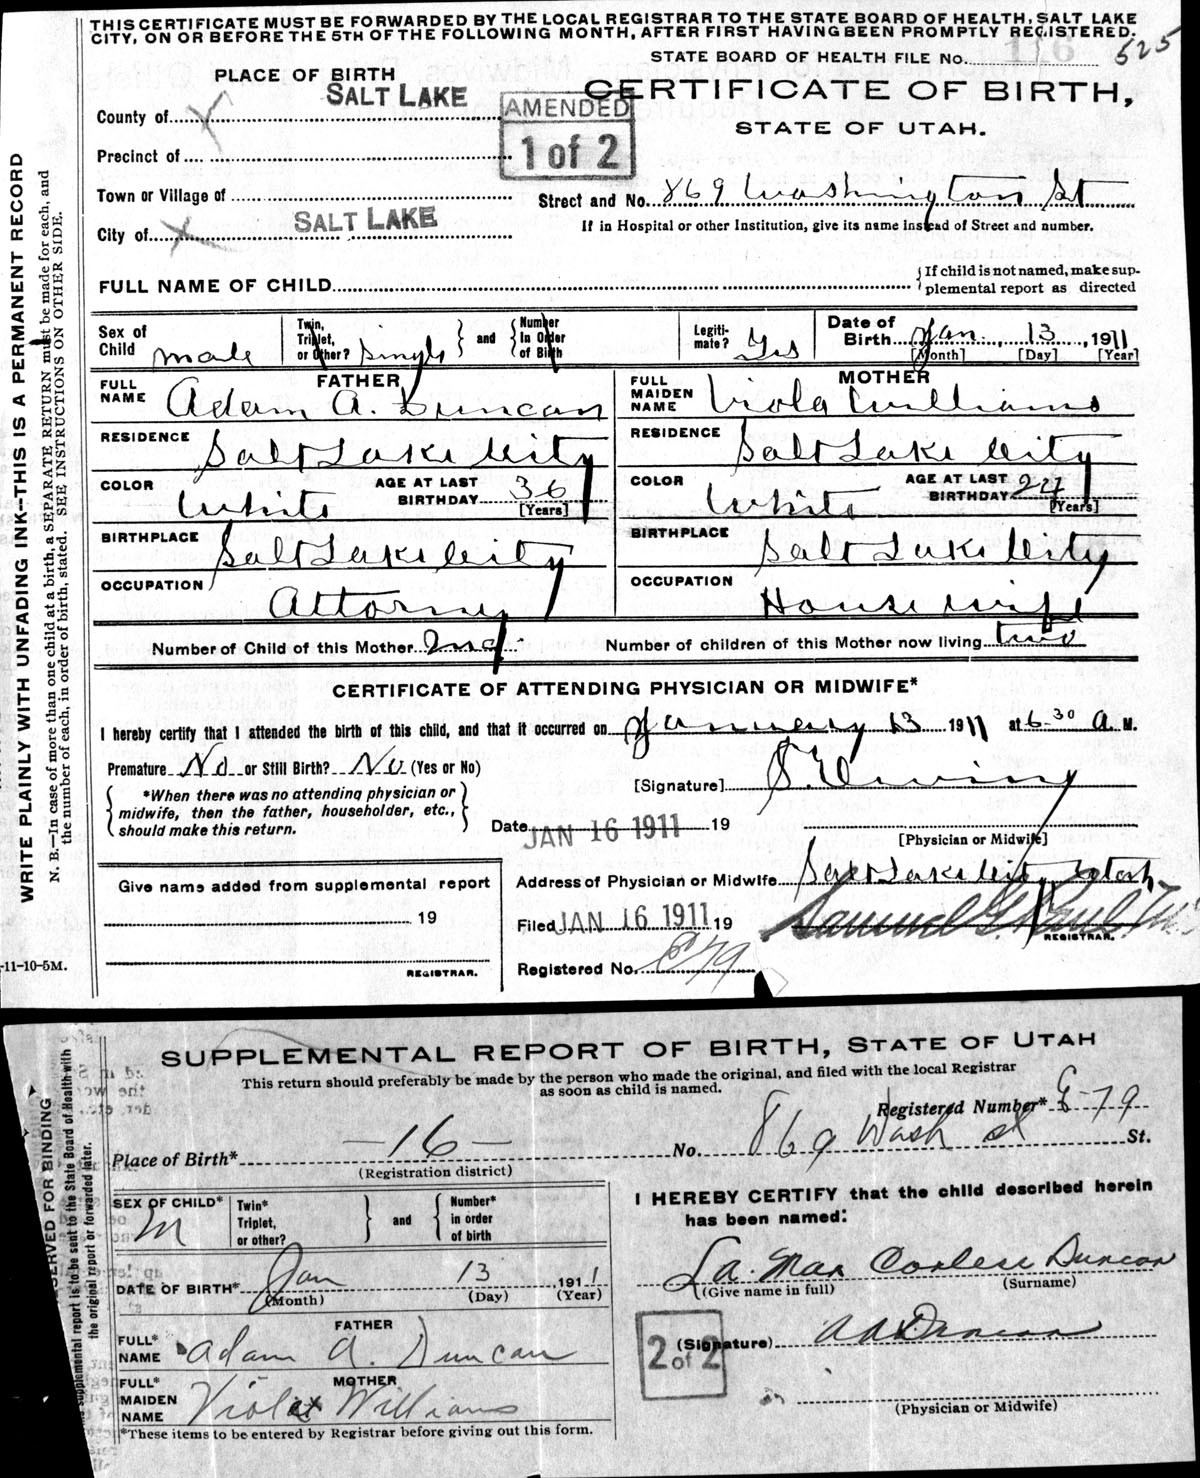 THIS CERTIFICATE MUST BE FORWARDED BY THE LOCAL REGISTRAR TO THE STATE BOARD OF HEALTH, SALT LAKE
CITY, ON OR BEFORE THE 5TH OF THE FOLLOWING MONTH, AFTER FIRST HAVING BEEN PROMPTLY REGISTERED.
STATE BOARD OF HEALTH FILE No. 116 525
PLACE OF BIRTH
CERTIFICATE OF BIRTH,
STATE OF UTAH.
County of SALT LAKE
AMENDED
1 of 2
Precinct of
Town or Village of
Street and No. 869 Washington St
City of SALT LAKE
If in Hospital or other Institution, give its name instead of Street and number.
FULL NAME OF CHILD
If child is not named, make sup-
plemental report as directed
Sex of Child male
Twin, Triplet, or Other? Single and Number In Order of Birth
Legiti-mate? Yes
Date of Birth Jan. 13, 1911
[Month] [Day] [Year]
FATHER
FULL NAME Adam A. Duncan
MOTHER
FULL MAIDEN NAME Viola Williams
RESIDENCE Salt Lake City
RESIDENCE Salt Lake City
COLOR White AGE AT LAST BIRTHDAY 36 [Years]
COLOR White AGE AT LAST BIRTHDAY 27 [Years]
BIRTHPLACE Salt Lake City
BIRTHPLACE Salt Lake City
OCCUPATION Attorney
OCCUPATION House wife
Number of Child of this Mother 2nd
Number of children of this Mother now living two
CERTIFICATE OF ATTENDING PHYSICIAN OR MIDWIFE*
I hereby certify that I attended the birth of this child, and that it occurred on January 13 1911 at 6-30 A. M.
Premature No or Still Birth? No (Yes or No)
[Signature]
*When there was no attending physician or
midwife, then the father, householder, etc.,
should make this return.
Date JAN 16 1911 19
[Physician or Midwife]
Give name added from supplemental report
19
REGISTRAR.
Address of Physician or Midwife Salt Lake City Utah
Filed JAN 16 1911 19
REGISTRAR.
Registered No. E79
-11-10-5M.
WRITE PLAINLY WITH UNFADING INK—THIS IS A PERMANENT RECORD
N. B.—In case of more than one child at a birth, a SEPARATE RETURN must be made for each, and
the number of each, in order of birth, stated. SEE INSTRUCTIONS ON OTHER SIDE.
SUPPLEMENTAL REPORT OF BIRTH, STATE OF UTAH
This return should preferably be made by the person who made the original, and filed with the local Registrar
as soon as child is named.
Registered Number* E-79
Place of Birth* —16— No. 869 Wash st St.
(Registration district)
SEX OF CHILD* M
Twin* Triplet, or other? and Number* in order of birth
I HEREBY CERTIFY that the child described herein
has been named:
DATE OF BIRTH* Jan 13 1911
(Month) (Day) (Year)
La Mar Corless Duncan
(Give name in full) (Surname)
FATHER
FULL* NAME Adam A. Duncan
2 of 2
(Signature) A A Duncan
MOTHER
FULL* MAIDEN NAME Violet Williams
(Physician or Midwife)
*These items to be entered by Registrar before giving out this form.
SERVED FOR BINDING
supplemental report is to be sent to the State Board of Health with
the original report or forwarded later.